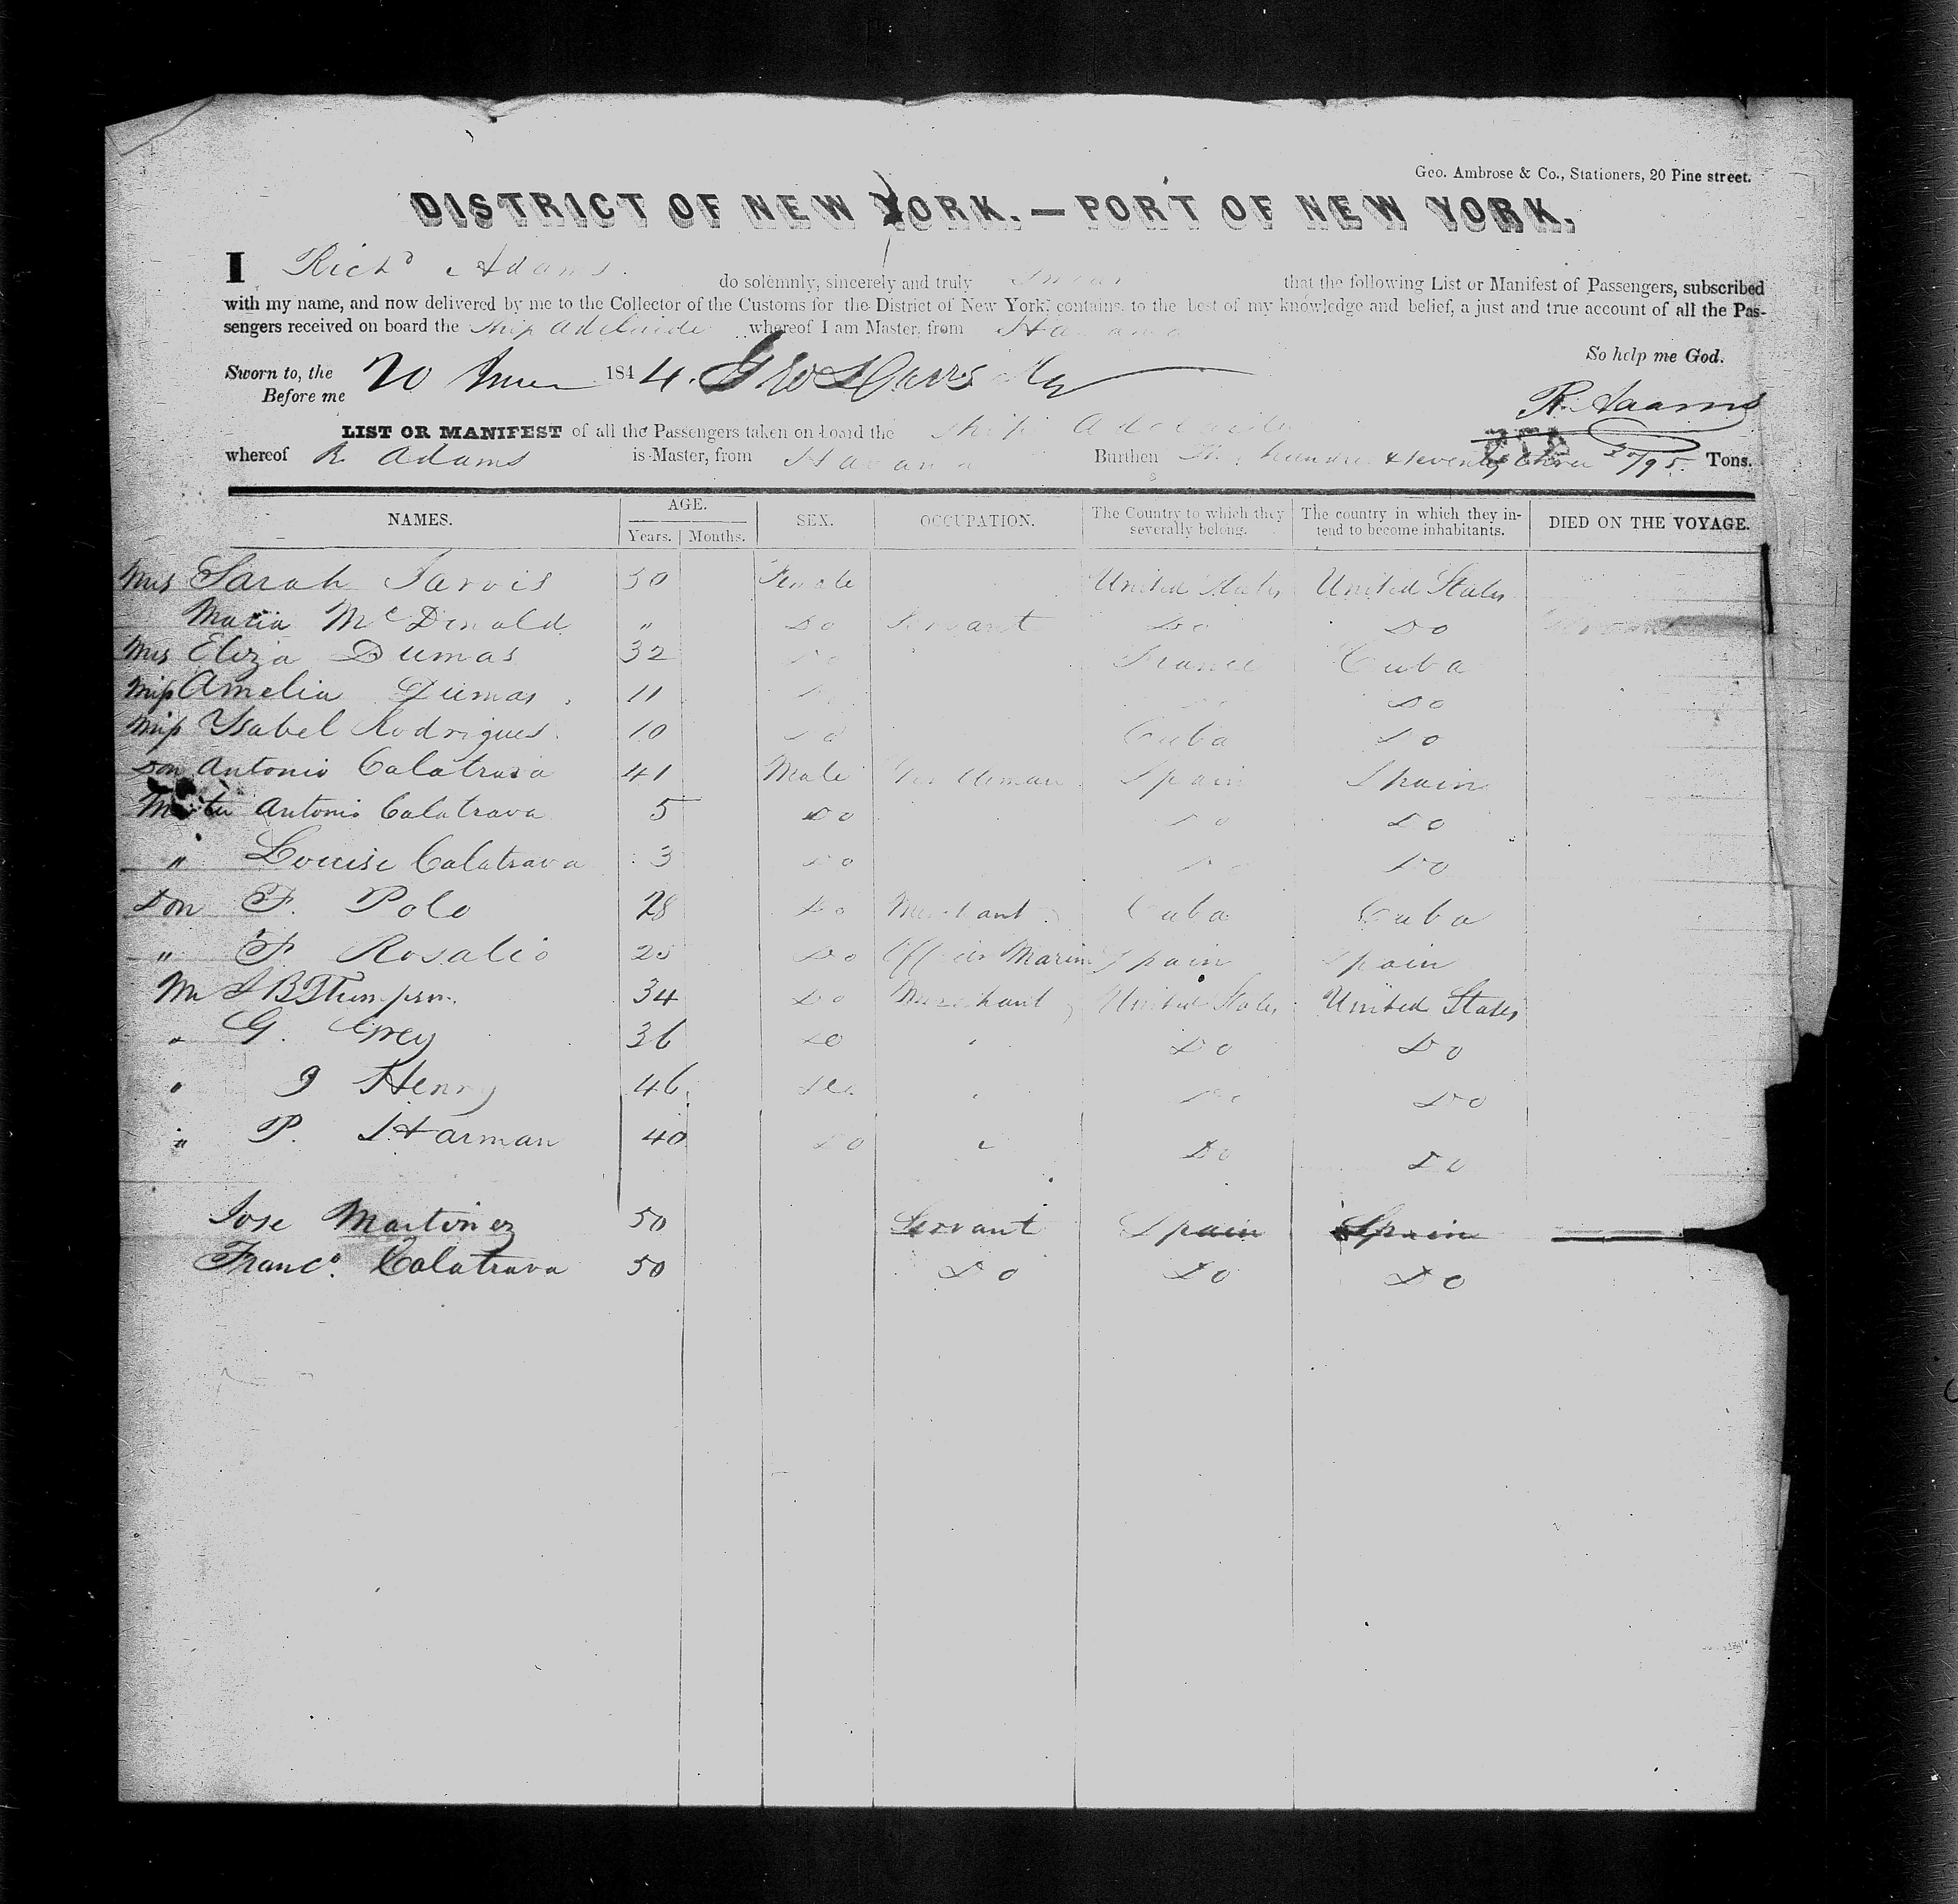 Geo. Ambrose & Co., Stationers, 20 Pine street.
DISTRICT OF NEW YORK. — PORT OF NEW YORK.
I Richd Adams. do solemnly, sincerely and truly swear that the following List or Manifest of Passengers, subscribed
with my name, and now delivered by me to the Collector of the Customs for the District of New York, contains, to the best of my knowledge and belief, a just and true account of all the Pas-
sengers received on board the Ship Adelaide whereof I am Master, from Havana
So help me God.
Sworn to, the 20 June 1844.
Before me
R. Adams
LIST OR MANIFEST of all the Passengers taken on board the Ship Adelaide
whereof R Adams is Master, from Havana Burthen Three hundred & seventy three /95. Tons.
NAMES. AGE. SEX. OCCUPATION. The Country to which they severally belong. The country in which they in-tend to become inhabitants. DIED ON THE VOYAGE.
Years. Months.
Mrs Sarah Jarvis 50 Female United States United States
Maria McDonald " Do Servant Do Do
Mrs Eliza Dumas 32 Do France Cuba
Miss Amelia Dumas 11 Do
Miss Ysabel Rodrigues 10 Do Cuba Do
Don Antonio Calatrava 41 Male Gentleman Spain Spain
Master Antonio Calatrava 5 Do Do Do
" Louise Calatrava 3 Do Do Do
Don F. Polo 28 Do Merchant Cuba Cuba
" F. Rosalio Do Officer Marine Spain Spain
Mr Thompson 34 Do Merchant United States United States
" G. Grey 36 Do " Do Do
" J Henry 46 Do " Do Do
" P. Harman 40 Do " Do Do
Jose Martinez 50 Servant Spain Spain
Franco. Calatrava 50 Do Do Do